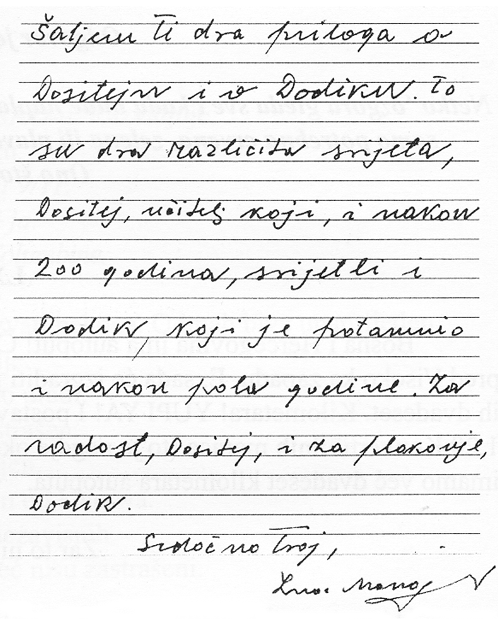 Šaljem Ti dva priloga o
Dositeju i o Dodiku. To
su dva različita svijeta,
Dositej, učitelj koji, i nakon
200 godina, svijetli i
Dodik koji je potamnio
i nakon pola godine. Za
radost, Dositej, i za plakanje,
Dodik.
Srdačno Tvoj,